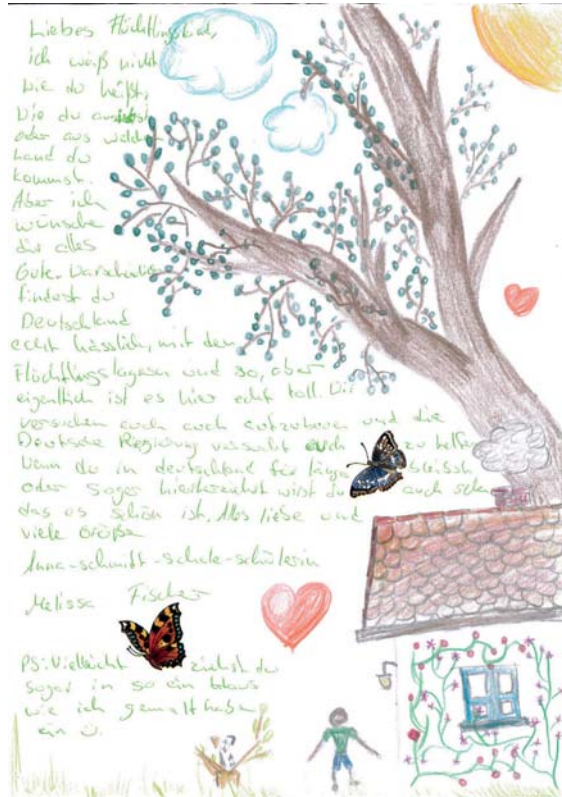 Liebes Flüchtlingskind,
ich weiß nicht
wie du heißt,
wie du aussiehst
oder aus welchem
Land du
kommst.
Aber ich
wünsche
dir alles
Gute. Warscheinlich
findest du
Deutschland
echt hässlich, mit den
Flüchtlingslagern und so, aber
eigentlich ist es hier echt toll. Wir
versuchen euch auch aufzubauen und die
Deutsche Regierung versucht euch zu helfen
Wenn du in deutschland für länger bleibst
oder sogar hierherziehst wirst du auch sehen
das es schön ist. Alles liebe und
viele Grüße
Anna-schmidt-schule-schülerin
Melissa Fischer
PS: Vielleicht ziehst du
sogar in so ein Haus
wie ich gemalt habe
ein ü.